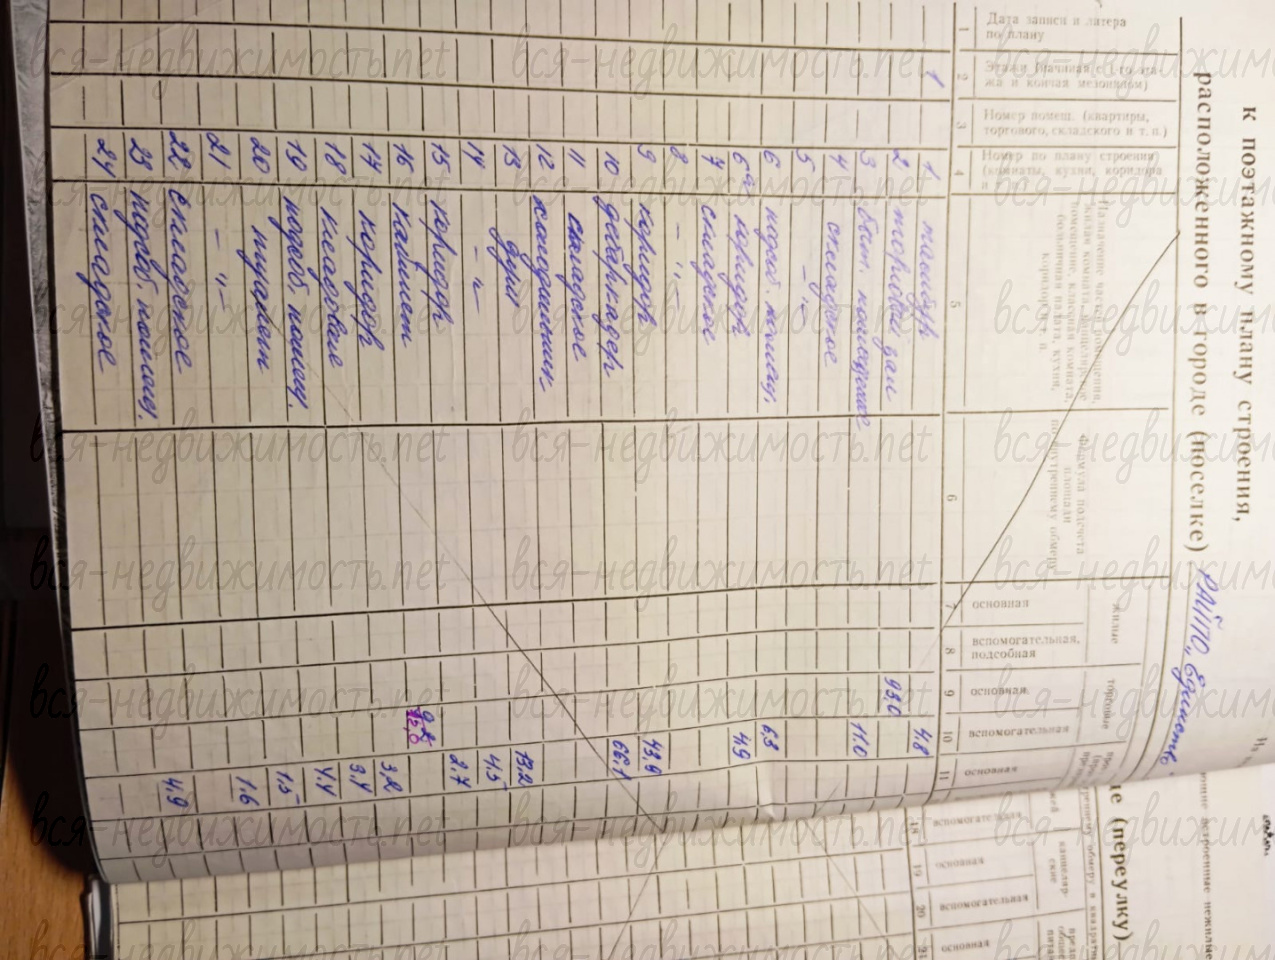 к поэтажному плану строения,
расположенного в городе (поселке) РАЙПО „Единство"
де (переулку)
Дата записи и литера
по плану
Этажи (начиная с 1-го эта-
жа и кончая мезонином)
Номер помещ. (квартиры,
торгового, складского и т. п.)
Номер по плану строения
(комнаты, кухни, коридора
Назначение частей помещения,
жилая комната, канцелярское
помещение, классная комната,
больничная палата, кухня,
коридор и т. п.
Формула подсчета
площади
по внутреннему обмеру
жилые
основная
вспомогательная,
подсобная
торговые
основная
вспомогательная
основная
вспомогательная
канцеляр-
ские
основная
вспомогательная
основная
1 2 3 4 5 6 7 8 9 10 11
18 19 20 21
1 1 тамбур 4,8
2 торговый зал 93,0
3 быт. помещение 11,0
4 складское
5 -„-
6 подсоб. помещ. 6,3
6а коридор 4,9
7 складское
8 -„-
9 коридор 43,9
10 дебаркадер 66,1
11 складское
12 холодильник
13 душ 13,2
14 -„- 4,5
15 коридор 2,7
16 кабинет
17 коридор 3,2
18 кладовая 3,4
19 подсоб. помещ.
20 туалет 1,5
21 -„- 1,6
22 складское
23 подсоб. помещ. 4,9
24 складское
вся-недвижимость.net